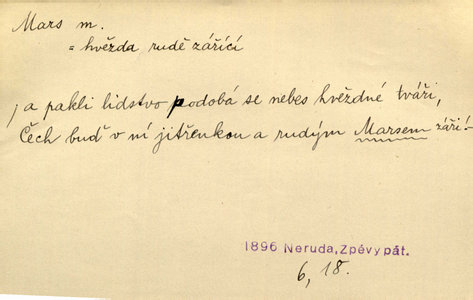 Mars m.
= hvězda rudě zářící
, a pakli lidstvo podobá se nebes hvězdné tváři,
Čech buď v ní jitřenkou a rudým Marsem září!
1896 Neruda, Zpěvy pát.
6, 18.